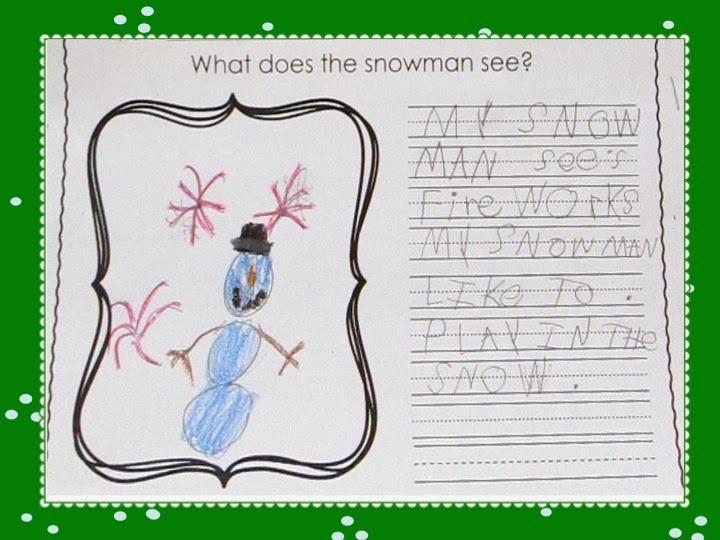 What does the snowman see?
MY SNOW
MAN see's
Fire WOrkS
MY SNOWMAN
LIKe TO .
PLAY IN THe
SNOW .